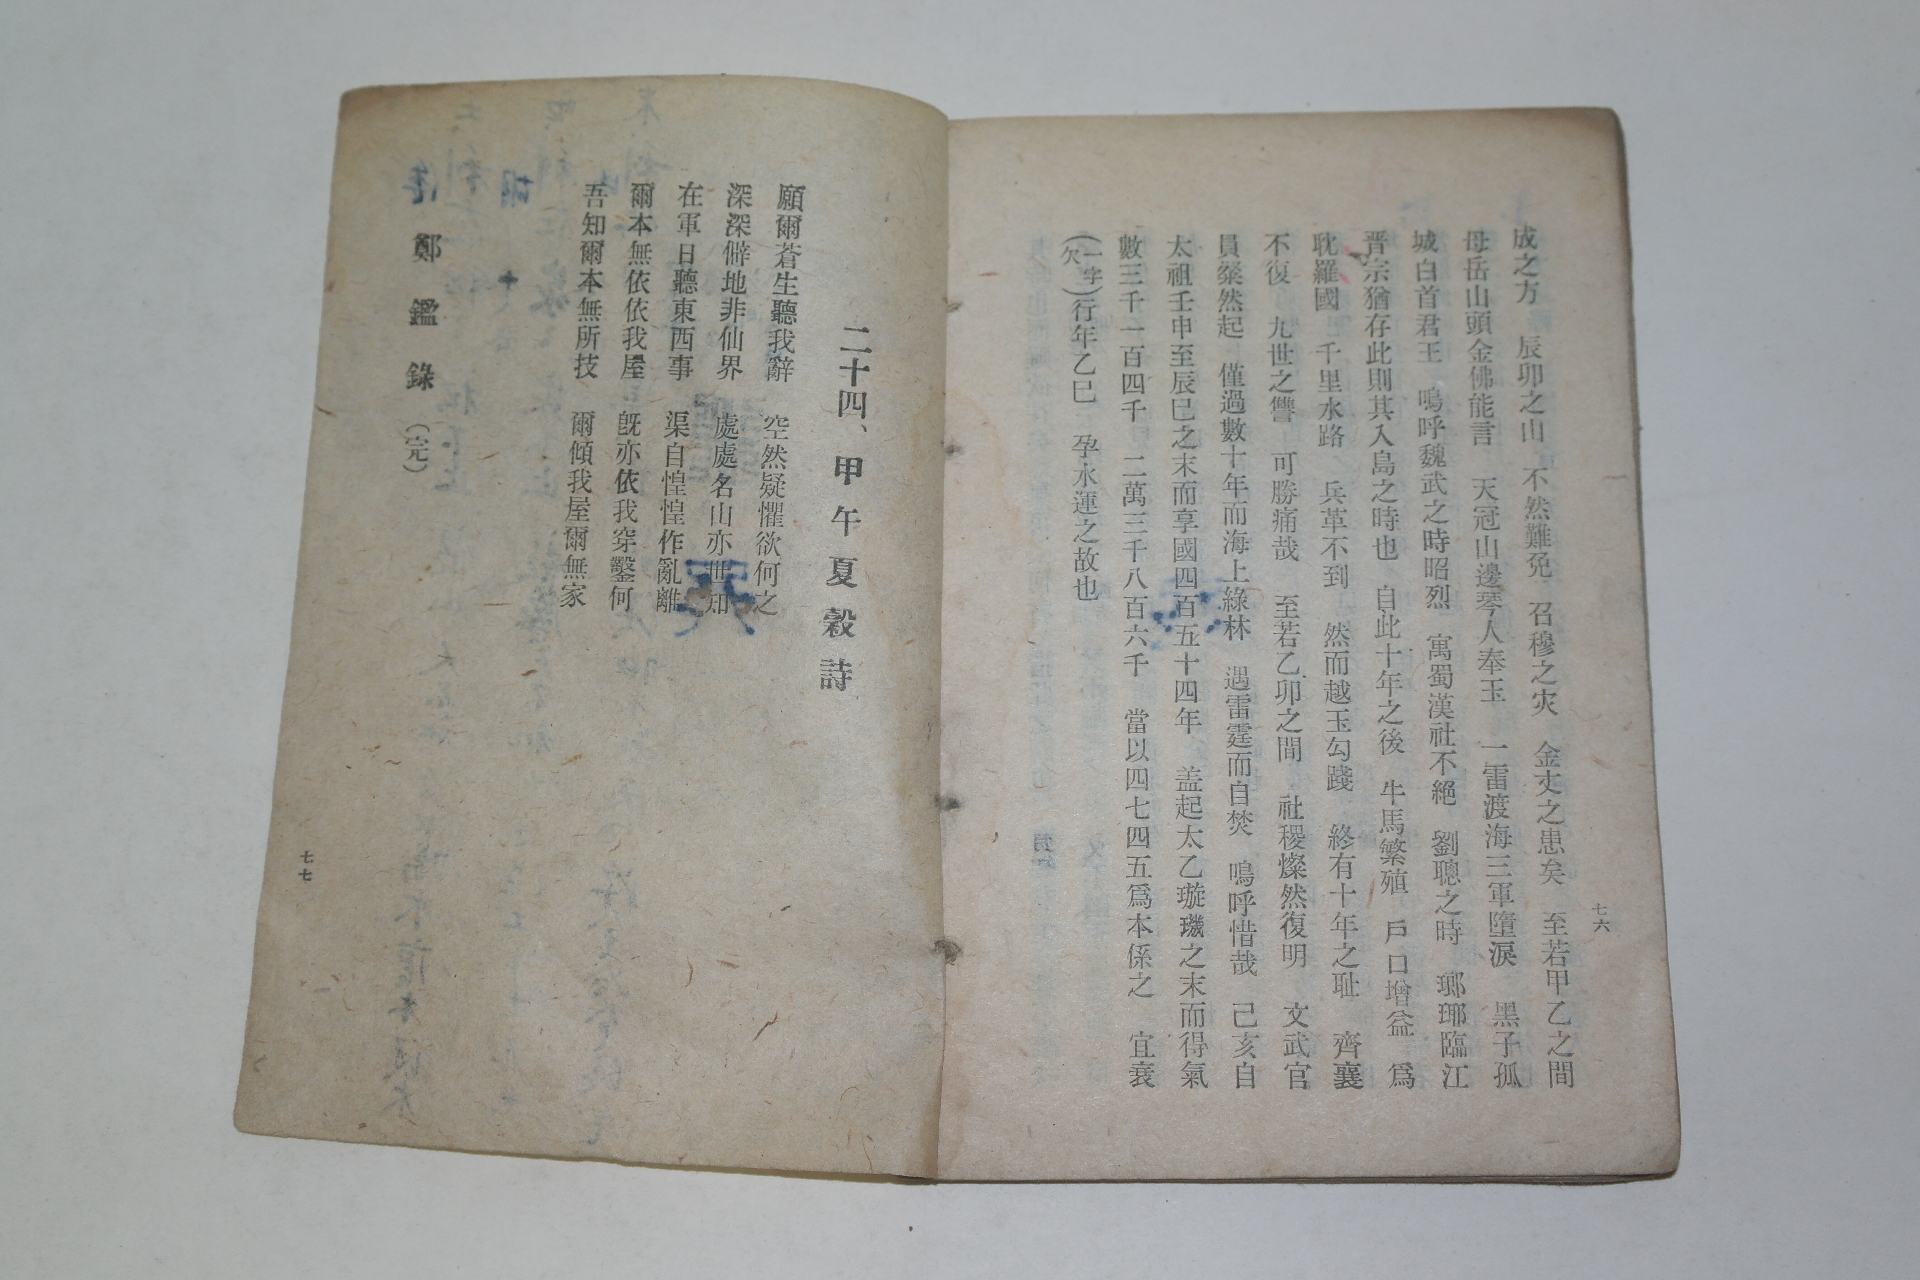 成之方 辰卯之山 不然難免 召穆之灾 金丈之患矣 至若甲乙之間
母岳山頭金佛能言 天冠山邊琴人奉玉 一雷渡海三軍墮淚 黑子孤
城白首君王 嗚呼魏武之時昭烈 寓蜀漢社不絕 劉聰之時 瑯琊臨江
晋宗猶存此則其入島之時也 自此十年之後 牛馬繁殖 戶口增益 爲
耽羅國 千里水路 兵革不到 然而越玉勾踐 終有十年之耻 齊襄
不復 九世之讐 可勝痛哉 至若乙卯之間 社稷燦然復明 文武官
員粲然起 僅過數十年而海上綠林 遇雷霆而自焚 嗚呼惜哉 己亥自
太祖壬申至辰巳之末而享國四百五十四年 盖起太乙璇璣之末而得氣
數三千一百四千 二萬三千八百六千 當以四七四五爲本係之 宜衰
(一字欠)行年乙巳 孕水運之故也
七六
二十四、甲午夏穀詩
願爾蒼生聽我辭 空然疑懼欲何之
深深僻地非仙界 處處名山亦世知
在軍日聽東西事 渠自惶惶作亂離
爾本無依依我屋 旣亦依我穿鑿何
吾知爾本無所技 爾傾我屋爾無家
鄭鑑錄(完)
七七